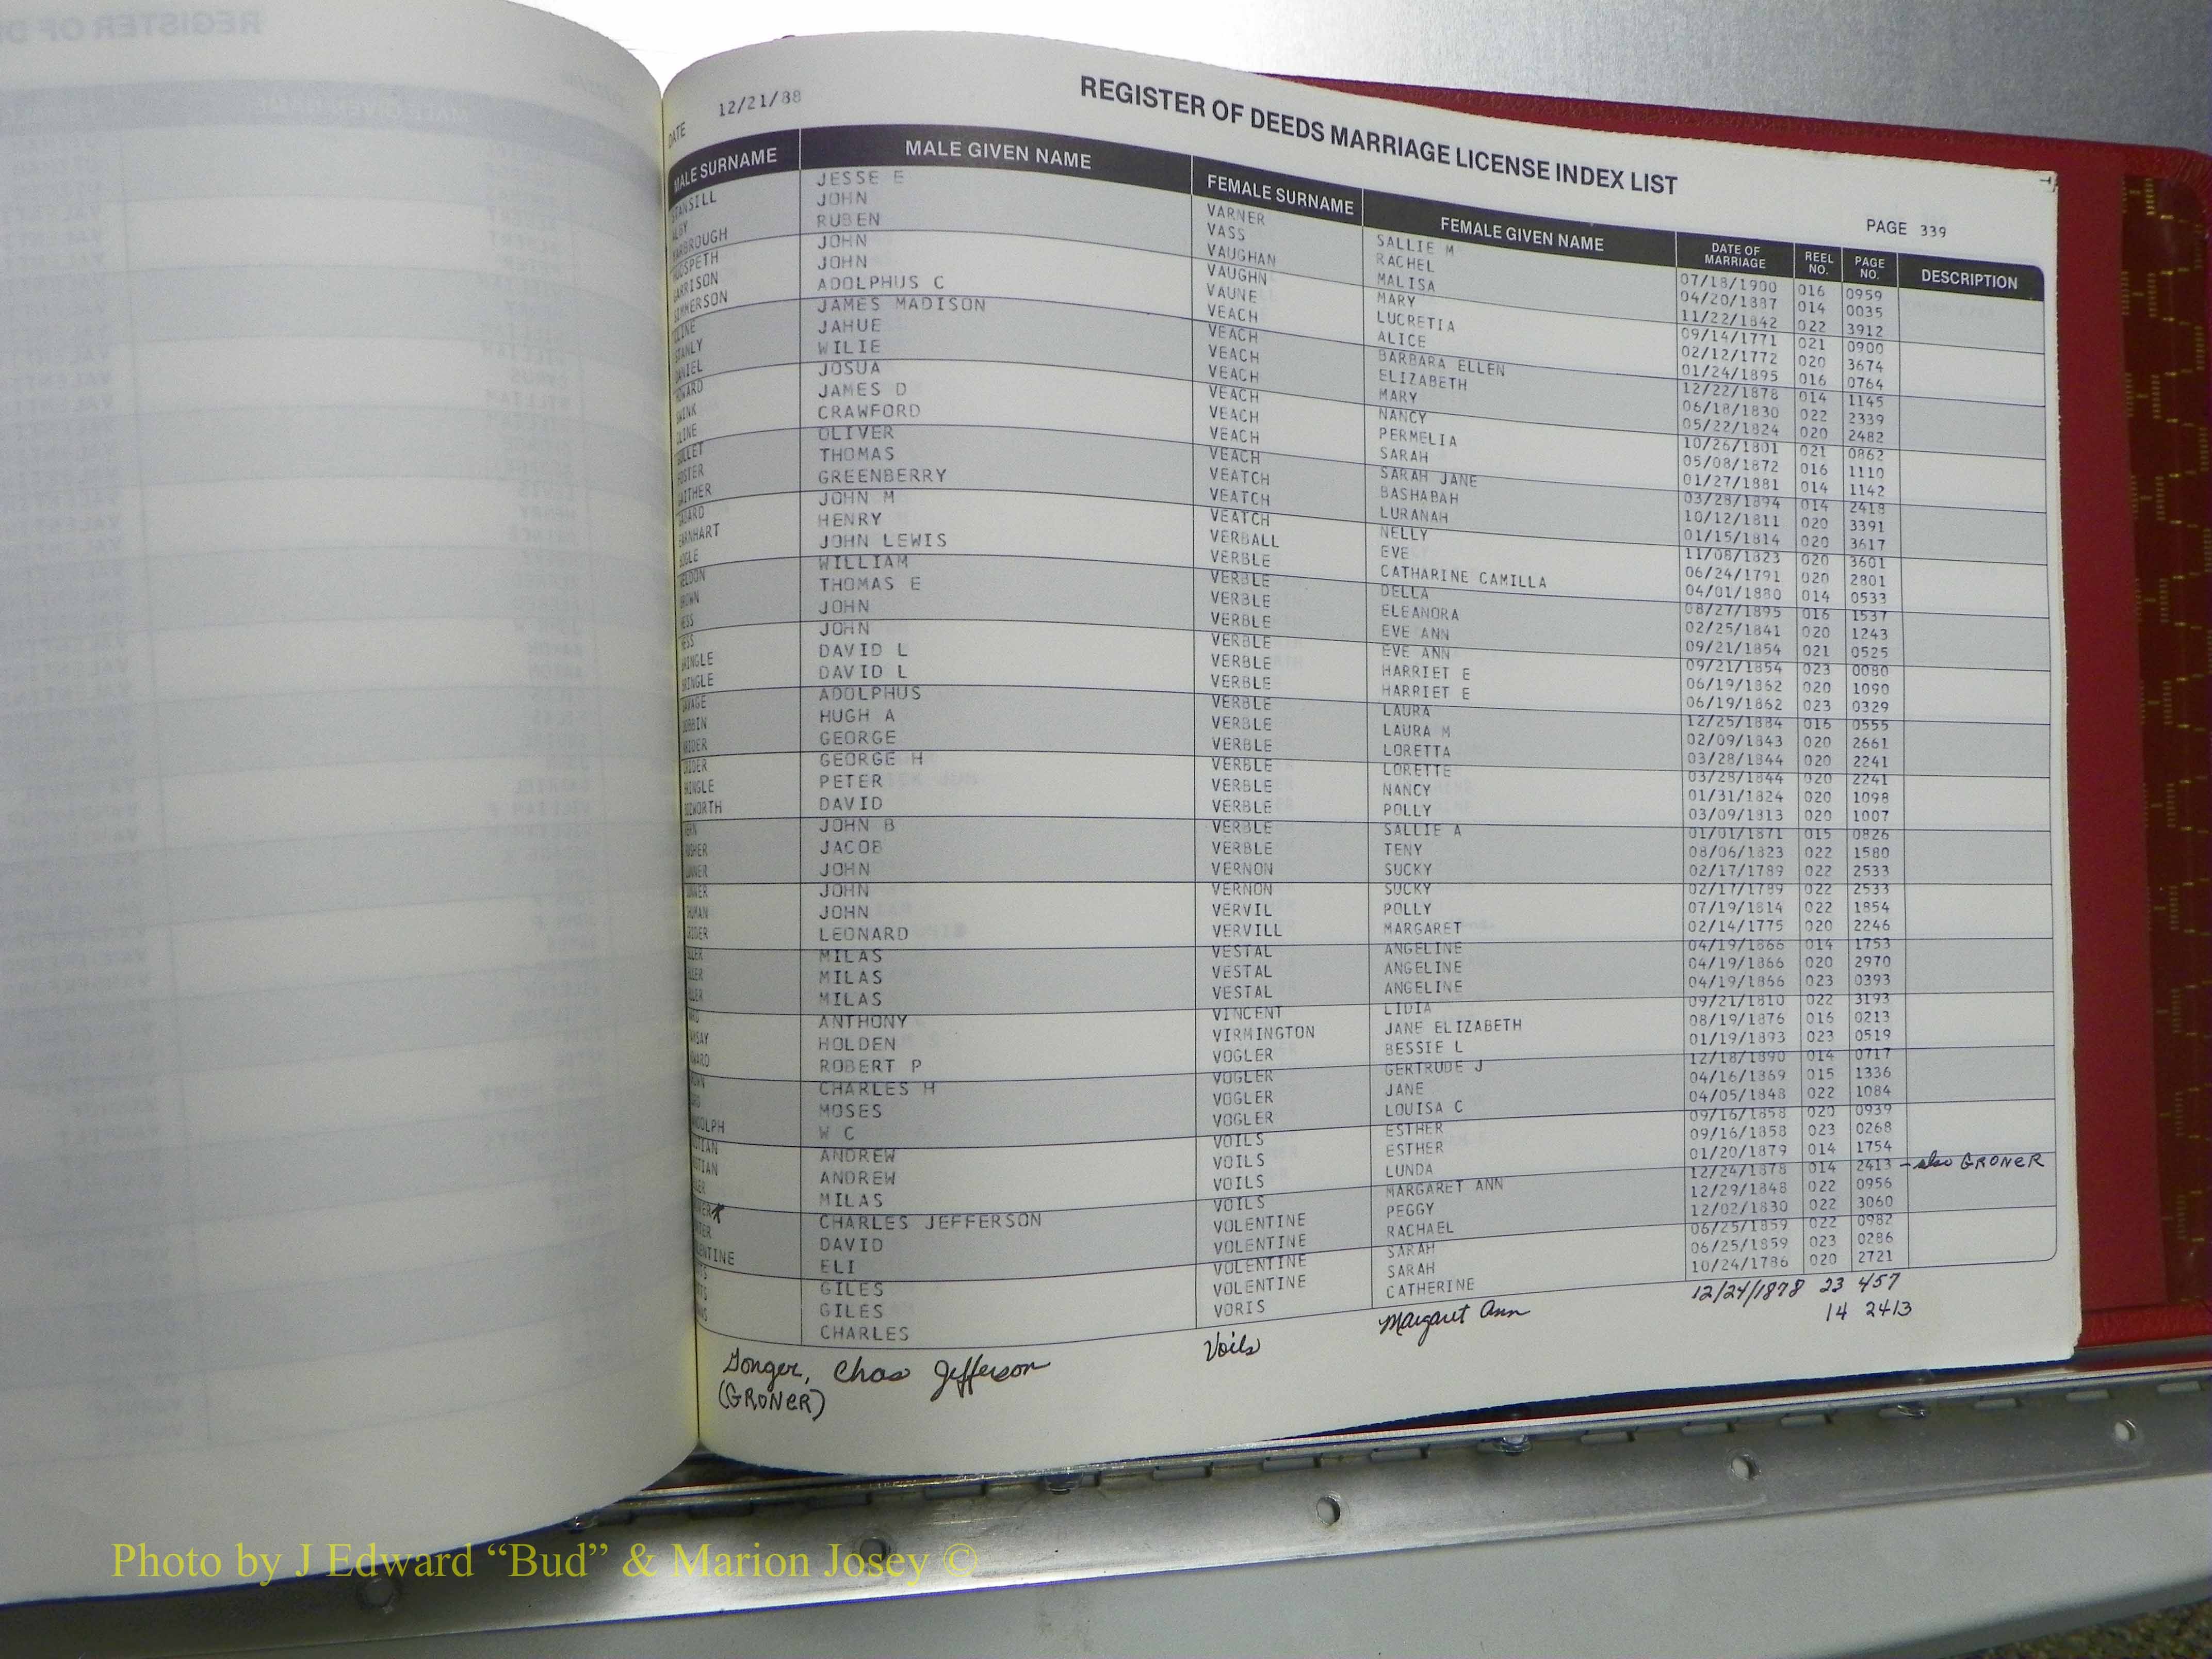 REGISTER OF DE
DATE 12/21/88 REGISTER OF DEEDS MARRIAGE LICENSE INDEX LIST PAGE 339
MALE SURNAME MALE GIVEN NAME FEMALE SURNAME FEMALE GIVEN NAME DATE OF MARRIAGE REEL NO. PAGE NO. DESCRIPTION
STANSILL JESSE E VARNER SALLIE M 07/18/1900 016 0959
JOHN VASS RACHEL 04/20/1887 014 0035
YARBROUGH RUBEN VAUGHAN MALISA 11/22/1842 022 3912
HUDSPETH JOHN VAUGHN MARY 09/14/1771 021 0900
GARRISON JOHN VAUNE LUCRETIA 02/12/1772 020 3674
ADOLPHUS C VEACH ALICE 01/24/1895 016 0764
CLINE JAMES MADISON VEACH BARBARA ELLEN 12/22/1878 014 1145
STANLY JAHUE VEACH ELIZABETH 06/18/1830 022 2339
DANIEL WILIE VEACH MARY 05/22/1824 020 2482
HOWARD JOSUA VEACH NANCY 10/26/1801 021 0862
SWINK JAMES D VEACH PERMELIA 05/08/1872 016 1110
CLINE CRAWFORD VEACH SARAH 01/27/1881 014 1142
GULLET OLIVER VEACH SARAH JANE 03/28/1894 014 2418
FOSTER THOMAS VEATCH BASHABAH 10/12/1811 020 3391
GAITHER GREENBERRY VEATCH LURANAH 01/15/1814 020 3617
JOHN M VEATCH NELLY 11/08/1823 020 3601
EARNHART HENRY VERBALL EVE 06/24/1791 020 2801
JOHN LEWIS VERBLE CATHARINE CAMILLA 04/01/1880 014 0533
WELDON WILLIAM VERBLE DELLA 08/27/1895 016 1537
BROWN THOMAS E VERBLE ELEANORA 02/25/1841 020 1243
HESS JOHN VERBLE EVE ANN 09/21/1854 021 0525
HESS JOHN VERBLE EVE ANN 09/21/1854 023 0080
SHINGLE DAVID L VERBLE HARRIET E 06/19/1862 020 1090
SHINGLE DAVID L VERBLE HARRIET E 06/19/1862 023 0329
SAVAGE ADOLPHUS VERBLE LAURA 12/25/1884 016 0555
DOBBIN HUGH A VERBLE LAURA M 02/09/1843 020 2661
KRIDER GEORGE VERBLE LORETTA 03/28/1844 020 2241
CRIDER GEORGE H VERBLE LORETTE 03/28/1844 020 2241
SHINGLE PETER VERBLE NANCY 01/31/1824 020 1098
DAVID VERBLE POLLY 03/09/1813 020 1007
JOHN B VERBLE SALLIE A 01/01/1871 015 0826
JACOB VERBLE TENY 08/06/1823 022 1580
JOHN VERNON SUCKY 02/17/1789 022 2533
JOHN VERNON SUCKY 02/17/1789 022 2533
JOHN VERVIL POLLY 07/19/1814 022 1854
LEONARD VERVILL MARGARET 02/14/1775 020 2246
MILAS VESTAL ANGELINE 04/19/1866 014 1753
MILAS VESTAL ANGELINE 04/19/1866 020 2970
MILAS VESTAL ANGELINE 04/19/1866 023 0393
ANTHONY VINCENT LIDIA 09/21/1810 022 3193
HOLDEN VIRMINGTON JANE ELIZABETH 08/19/1876 016 0213
ROBERT P VOGLER BESSIE L 01/19/1893 023 0519
CHARLES H VOGLER GERTRUDE J 12/18/1890 014 0717
MOSES VOGLER JANE 04/16/1869 015 1336
W C VOGLER LOUISA C 04/05/1848 022 1084
ANDREW VOILS ESTHER 09/16/1858 020 0939
ANDREW VOILS ESTHER 09/16/1858 023 0268
MILAS VOILS LUNDA 01/20/1879 014 1754
CHARLES JEFFERSON VOILS MARGARET ANN 12/24/1878 014 2413 - also GRONER
DAVID VOLENTINE PEGGY 12/29/1848 022 0956
ELI VOLENTINE RACHAEL 12/02/1830 022 3060
GILES VOLENTINE SARAH 06/25/1859 022 0982
GILES VOLENTINE SARAH 06/25/1859 023 0286
CHARLES VORIS CATHERINE 10/24/1786 020 2721
Gonger, Chas Jefferson Voils Margaret Ann 12/24/1878 23 457
(GRONER) 14 2413
Photo by J Edward “Bud” & Marion Josey ©